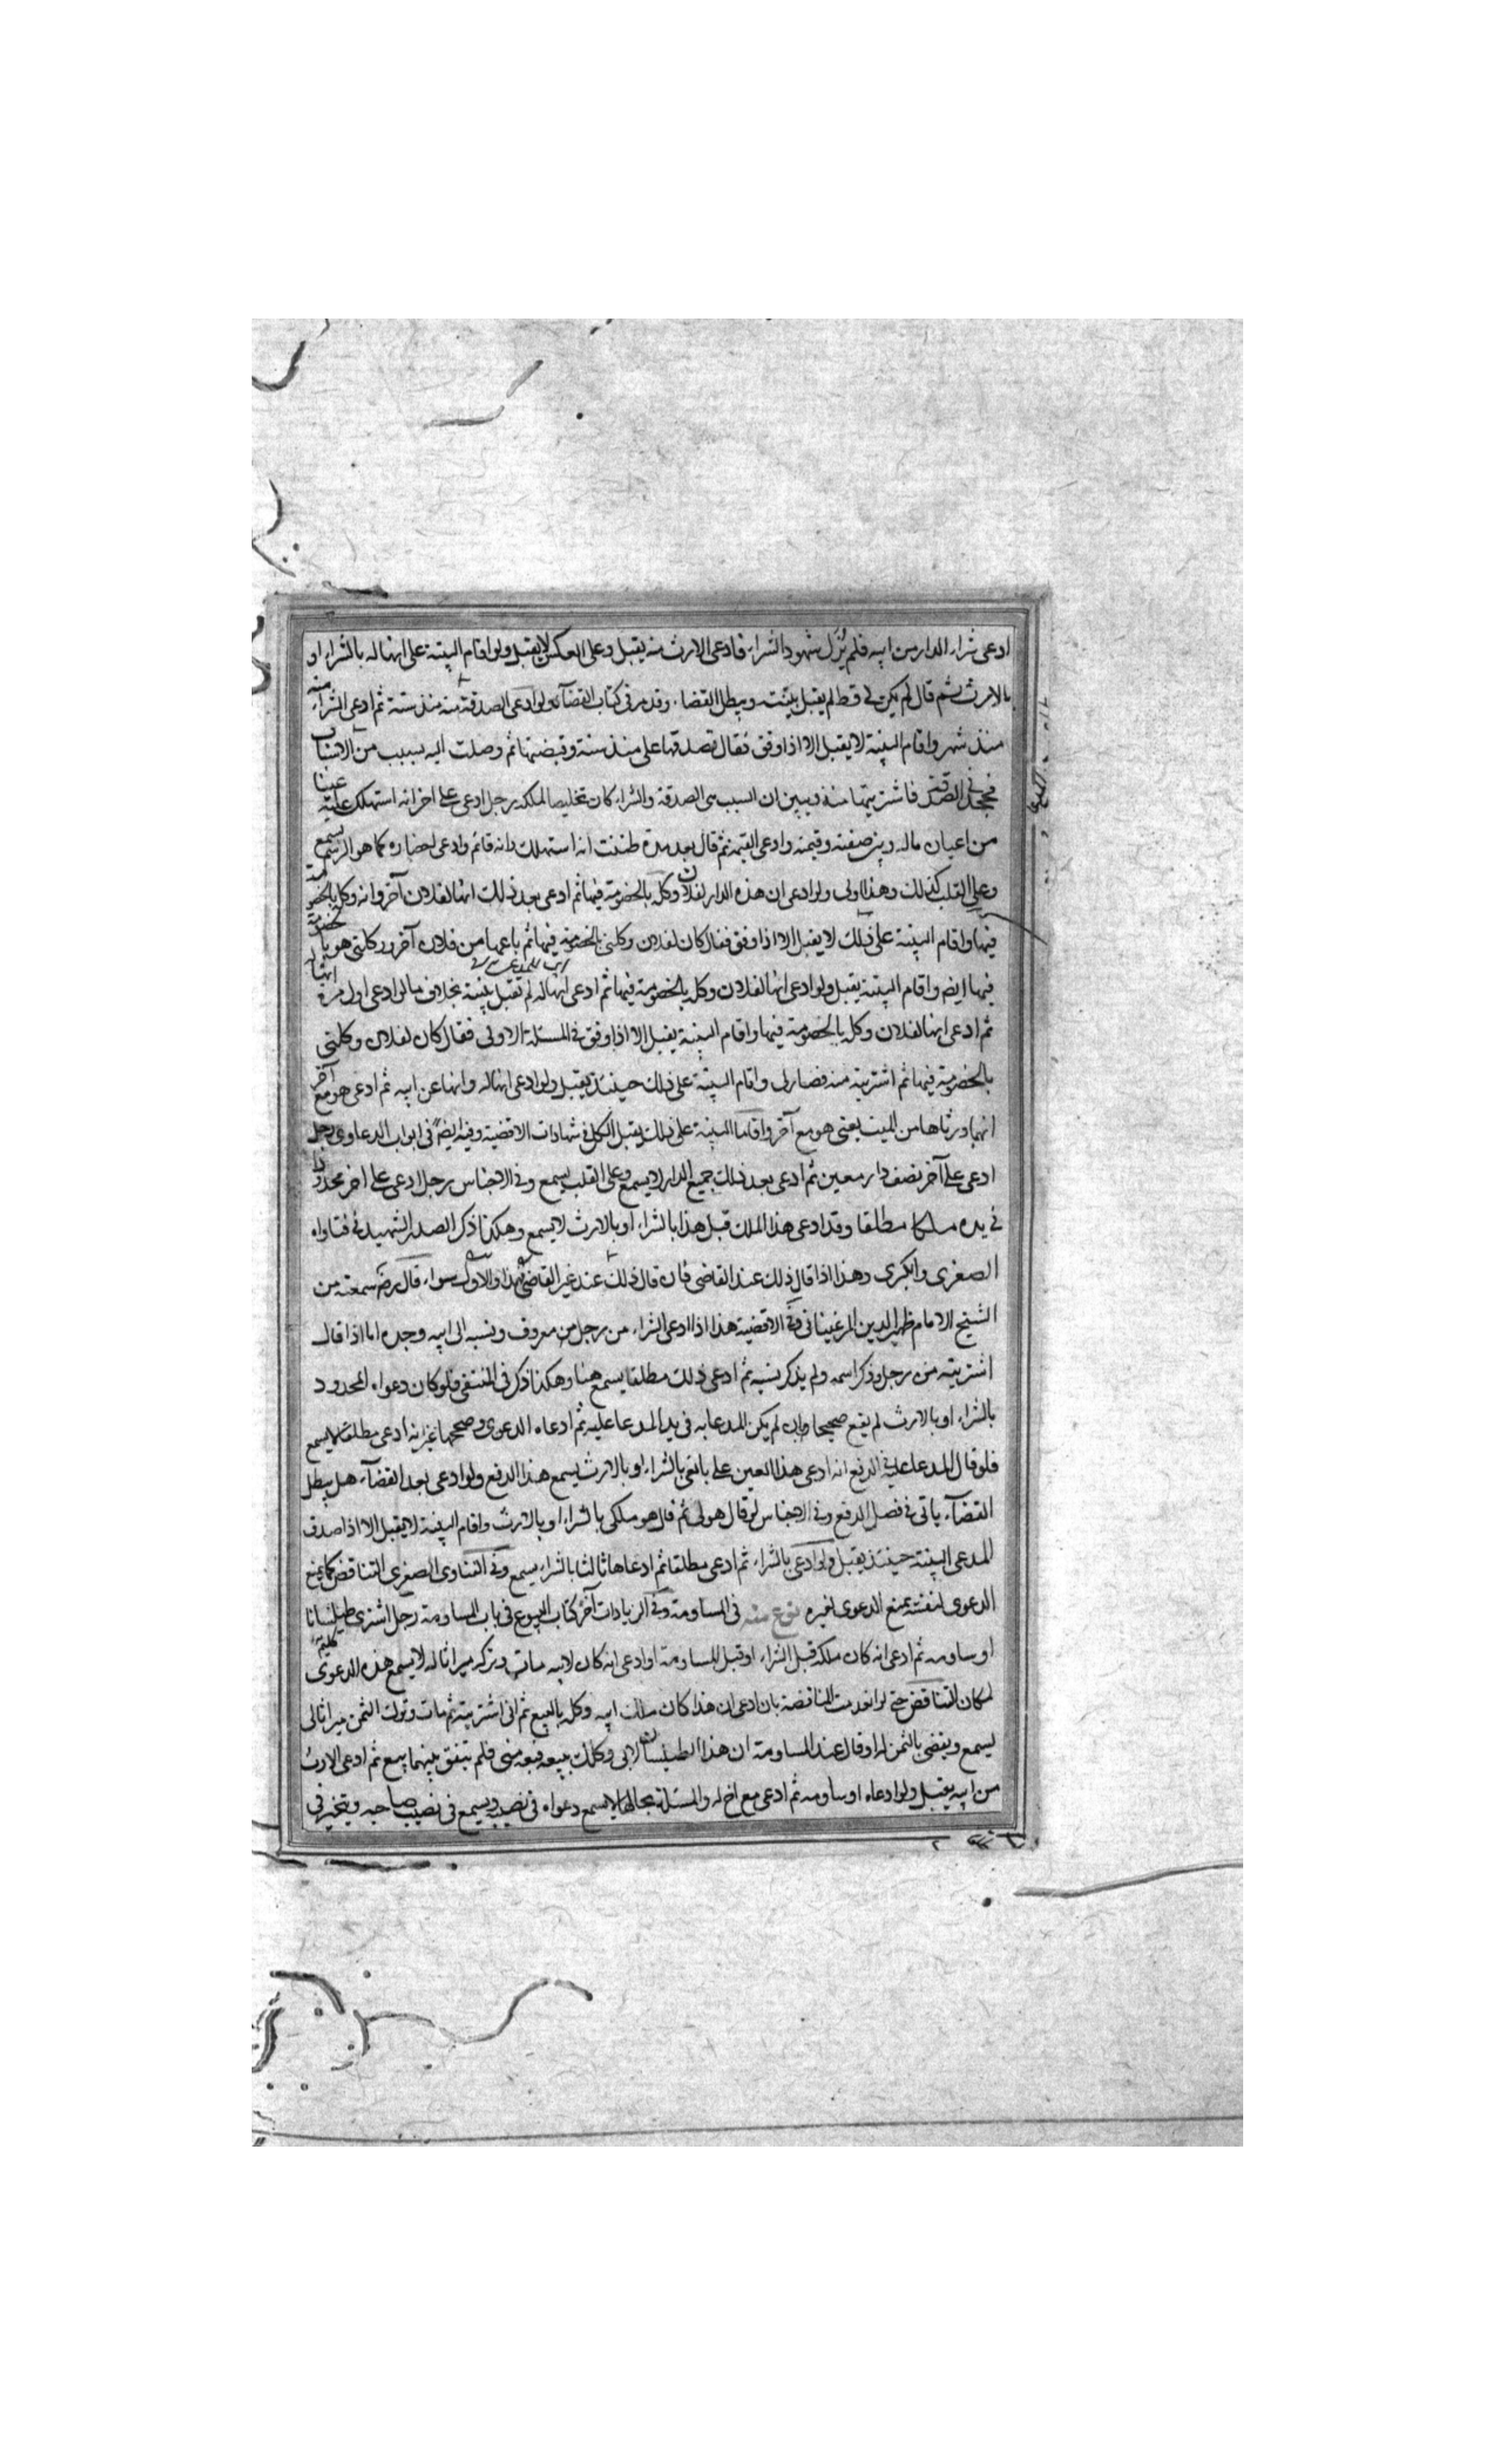 ادعى شراء الدار من ابيه فلم يُزَل شهود الشراء فادعى الارث منه يقبل وعلى العكس لا يقبل ولو اقام البينة على انها له بالشراء او
بالارث ثم قال لم يكن لي قط لم يقبل بينته ويبطل القضاء وقد مر في كتاب القضاء ولو ادعى الصدقة منه منذ سنة ثم ادعى الشراء منه
منذ شهر واقام البينة لا يقبل الا اذا وفق فقال تصدقها على منذ سنة وقبضتها ثم وصلت اليه بسبب من الاسباب
فجحدني الصدقة فاشتريتها منه ويبين ان السبب هي الصدقة والشراء كان تخليصا لملكه رجل ادعى على اخر انه استهلك عليه عينا
من اعيان ماله وبين صفته وقيمته وادعى القيمة ثم قال بعد مدة ظننت انه استهلك وانه قائم وادعى احضاره كما هو الرسم يسمع
وعلى القلب كذلك وهذا اولى ولو ادعى ان هذه الدار لفلان وكله بالخصومة فيها ثم ادعى بعد ذلك انها لفلان آخر وانه وكله بالخصومة
فيها واقام البينة على ذلك لا يقبل الا اذا وفق فقال كان لفلان وكلني بالخصومة فيها ثم باعها من فلان آخر ووكلني هو بالخصومة
فيها ايضا واقام البينة يقبل ولو ادعى انها لفلان وكله بالخصومة فيها ثم ادعى انها له لم تقبل بينته بخلاف ما لو ادعى اول مرة انها له
ثم ادعى انها لفلان وكله بالخصومة فيها واقام البينة يقبل الا اذا وفق في المسئلة الاولى فقال كان لفلان وكلني
بالخصومة فيها ثم اشتريته منه فصار لي واقام البينة على ذلك حينئذ يقبل ولو ادعى انها له وانها عن ابيه ثم ادعى هو مع آخر
انهما ورثاها من الميت يعني هو مع آخر واقاما البينة على ذلك يقبل الكل في شهادات الاقضية وفيه ايضا في ابواب الدعاوى رجل
ادعى على آخر نصف دار معين ثم ادعى بعد ذلك جميع الدار لا يسمع وعلى القلب يسمع وفي الاجناس رجل ادعى على اخر محدودا
في يده ملكا مطلقا وقد ادعى هذا الملك قبل هذا بالشراء او بالارث لا يسمع وهكذا ذكر الصدر الشهيد في فتاواه
الصغرى والكبرى وهذا اذا قال ذلك عند القاضي فان قال ذلك عند غير القاضي فهذا والاول سواء قال رضي سمعته من
الشيخ الامام ظهير الدين المرغيناني وفي الاقضية هذا اذا ادعى الشراء من رجل معروف ونسبه الى ابيه وجده اما اذا قال
اشتريته من رجل وذكر اسمه ولم يذكر نسبه ثم ادعى ذلك مطلقا يسمع هنا وهكذا ذكر في المنتقى فلو كان دعواه المحدود
بالشراء او بالارث لم يقع صحيحا وان لم يكن المدعا به في يد المدعا عليه ثم ادعاه الدعوى وصححها غير انه ادعى مطلقا لا يسمع
فلو قال المدعا عليه في الدفع انه ادعى هذا العين على بائعي بالشراء او بالارث يسمع هذا الدفع ولو ادعى بعد القضاء هل يبطل
القضاء ياتي في فصل الدفع وفي الاجناس لو قال هو لي ثم قال هو ملكي بالشراء او بالارث واقام البينة لا يقبل الا اذا صدف
المدعى البينة حينئذ يقبل ولو ادعى بالشراء ثم ادعى مطلقا ثم ادعاها ثالثا بالشراء يسمع وفي الفتاوى الصغرى التناقض كما يمنع
الدعوى لنفسه يمنع الدعوى لغيره نوع منه في المساومة وفي الزيادات آخر كتاب البيوع في باب المساومة رجل اشترى طيلسانا
او ساومه ثم ادعى انه كان ملكه قبل الشراء او قبل المساومة او ادعى انه كان لابيه مات وتركه ميراثا له لا يسمع هذه الدعوى
لمكان التناقض حتى لو انعدمت المناقضة بان ادعى ان هذا كان ملك ابيه وكله بالبيع ثم اني اشتريته ثم مات وترك الثمن ميراثا لي
يسمع ويقضى بالثمن له او قال عند المساومة ان هذا الطيلسان لابي وكلك ببيعه فبعه مني فلم يتفق بينهما بيع ثم ادعى الارث
من ابيه يقبل ولو ادعاه او ساومه ثم ادعى مع اخ له والمسئلة بحالها لا يسمع دعواه في نصيبه ويسمع في نصيب صاحبه ويتخير في